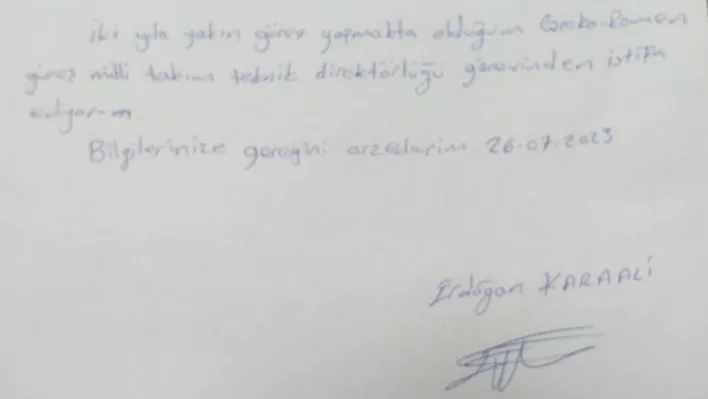 iki yıla yakın görev yapmakta olduğum Greko-Romen
güreş milli takım teknik direktörlüğü görevinden istifa
ediyorum
Bilgilerinize gereğini arzederim 26.07.2023
Erdoğan KARAALİ